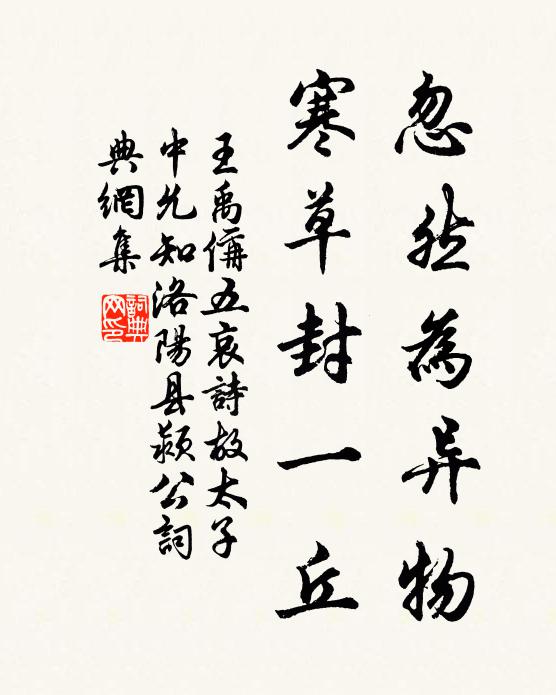 忽然為异物
寒草封一丘
王禹偁五哀詩故太子
中允知洛陽县颍公詞
典網集
詞典
网印